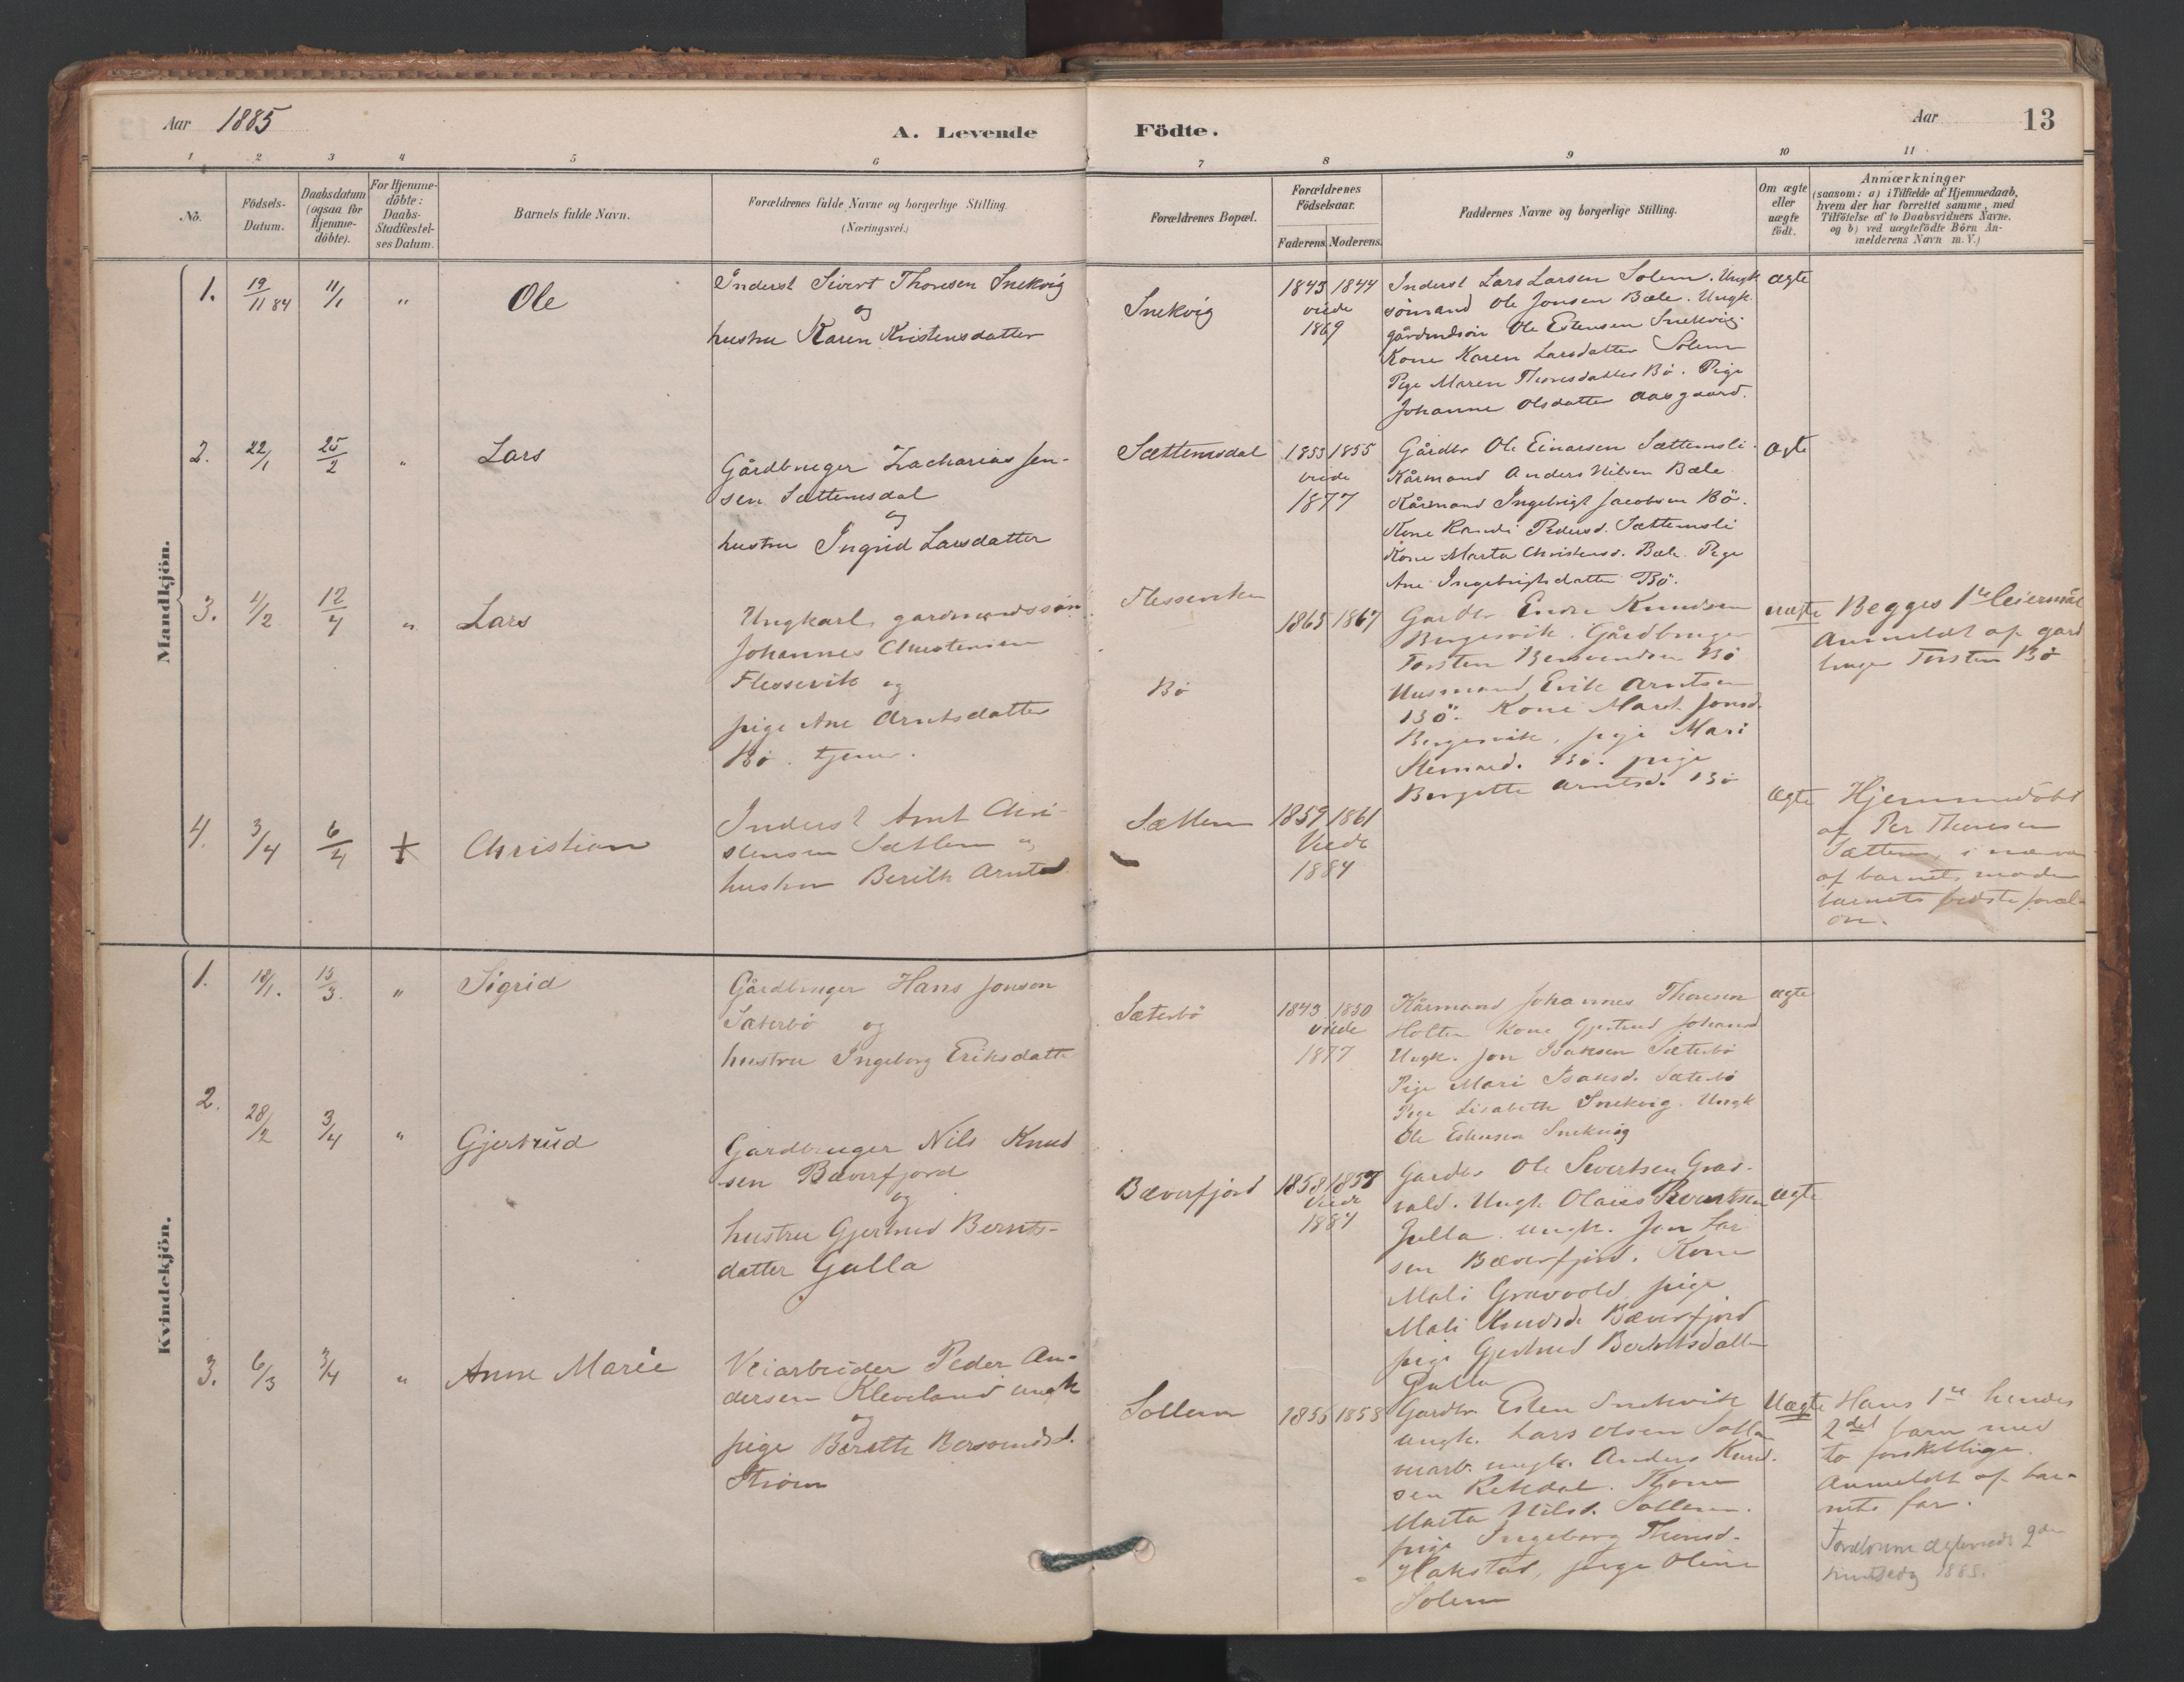 Aar 1885
A. Levende
Födte.
Aar
13
1 2 3 4 5 6 7 8 9 10 11
No.
Födsels-Datum.
Daabsdatum (ogsaa for Hjemme-döbte).
For Hjemme-döbte: Daabs-Stadfæstel-ses Datum.
Barnets fulde Navn.
Forældrenes fulde Navne og borgerlige Stilling.
(Næringsvei.)
Forældrenes Bopæl.
Forældrenes Födselsaar.
Faderens. Moderens.
Faddernes Navne og borgerlige Stilling.
Om ægte eller uægte födt.
Anmærkninger
(saasom: a) i Tilfælde af Hjemmedaab,
hvem der har forrettet samme, med
Tilföielse af to Daabsvidners Navne,
og b) ved uægtefödte Börn An-
melderens Navn m. V.)
Mandkjön.
1. 19/11 84 11/1 " Ole
Inderst Sivert Thoresen Snekvig
og
hustru Karen Kristensdatter
Snekvig
1843 1844
viede
1869
Inderst Lars Larsen Solem. Ungk.
sömand Ole Jonsen Bæle. Ungk.
gårdmdsön Ole Estensen Snekvig.
Kone Karen Larsdatter Solem
Pige Maren Thoresdatter Bö. Pige
Johanne Olsdatter Aasgaard.
ægte
2. 22/1 25/2 " Lars
Gårdbruger Zacharias Jen-
sen Sættemsdal
og
hustru Ingrid Larsdatter
Sættemsdal
1853 1855
viede
1877
Gårdbr Ole Einarsen Sættemsli
Kårmand Anders Nilsen Bæle
Kårmand Ingebrigt Jacobsen Bö.
Kone Randi Pedersd. Sættemsli
Kone Marta Christensd. Bæle. Pige
Ane Ingebrigtsdatter Bö.
ægte
3. 4/2 12/4 " Lars
Ungkarl, gardmandssön
Johannes Christensen
Flessevik og
pige Ane Arntsdatter
Bö. tjener.
Flesseviken
Bö
1865 1867
Gardbr Endre Knudsen
Bergesvik. Gårdbruger
Torsten Bersvendsen Bö
Husmand Erik Arntsen
Bö. Kone Maret Jonsd.
Bergesvik, pige Mari
Steinard. Bö. pige
Bergette Arntsd. Bö
uægte
Begges 1ste leiermål
Anmeldt af gard
bruger Torsten Bö
4. 3/4 6/4 + Christian
Inderst Arnt Chri-
stensen Sættem og
hustru Berith Arntsd.
Sættem
1859 1861
Viede
1884
ægte
Hjemmedöbt
af Per Thoresen
Sættem, i nærvær
af barnets moder
barnets bedste foræl-
dre.
Kvindekjön.
1. 18/1. 15/3. " Sigrid
Gårdbruger Hans Jonson
Sæterbö og
hustru Ingeborg Eriksdatte
Sæterbö
1843 1850
viede
1877
Kårmand Johannes Thoresen
Holten Kone Gjertrud Johansd
Ungk. Jon Isaksen Sæterbö
Pige Mari Isaksd. Sæterbö
Pige Lisabeth Snekvig. Ungk
Ole Estensen Snekvig
ægte
2. 28/2 3/4 " Gjertrud
Gardbruger Nils Knud
sen Bæverfjord
og
hustru Gjertrud Bernts-
datter Gulla
Bæverfjord
1858 1857
Viede
1884
Gardbr Ole Sivertsen Gras-
vold. Ungk. Olaus Berntsen
Gulla. ungk. Jon Lar
sen Bæverfjord. Kone
Mali Grasvold, pige
Mali Knudsd. Bæverfjord
pige Gjertrud Berntsdatter
Gulla
ægte
3. 6/3 3/4 " Anne Marie
Veiarbeider Peder An-
dersen Kleveland ungk
og
pige Berith Bersvendsd.
Ström
Sollem
1856 1858
Gardbr Esten Snekvik
ungk. Lars Olsen Solle
marb. ungk. Anders Knud-
sen Rekdal. Kone
Marta Nilsd. Sollem.
pige Ingeborg Thoresd.
Hakstad, pige Oline
Solem
Uægte
Hans 1ste hendes
2det barn med
to forskellige.
Anmeldt af bar-
nets far.
1885.